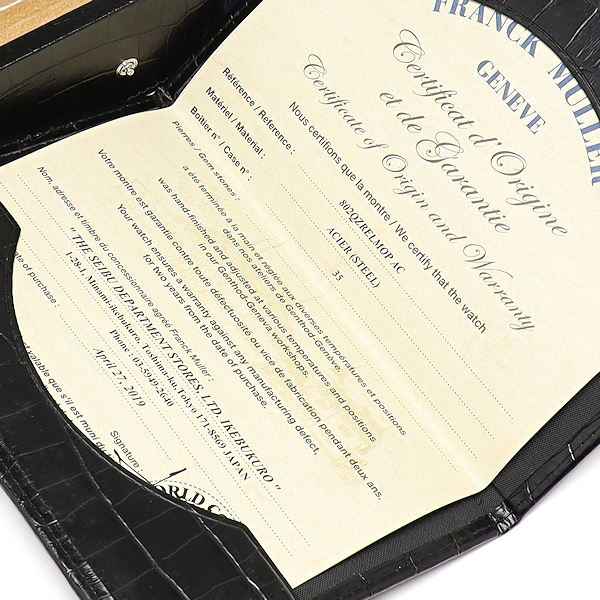 FRANCK MULLER
GENEVE
Certificat d'Origine
et de Garantie
Certificate of Origin and Warranty
Nous certifions que la montre / We certify that the watch
Référence / Reference : 802QZRELMOP AC
Matériel / Material : ACIER (STEEL)
Boîtier n° / Case n° : 35
Pierres / Gem stones :
a été terminée à la main et réglée aux diverses températures et positions
dans nos ateliers de Genthod-Genève.
was hand-finished and adjusted at various temperatures and positions
in our Genthod-Geneva workshops.
Votre montre est garantie contre toute défectuosité ou vice de fabrication pendant deux ans.
Your watch ensures a warranty against any manufacturing defect,
for two years from the date of purchase.
Nom, adresse et timbre du concessionnaire agréé Franck Muller
" THE SEIBU DEPARTMENT STORES, LTD. IKEBUKURO "
1-28-1, Minami-Ikebukuro, Toshima-ku, Tokyo 171-8569 JAPAN
Phone : 03-5949-2640
ate of purchase : April 27, 2019
t valable que s'il est muni du
Signature
WORLD C